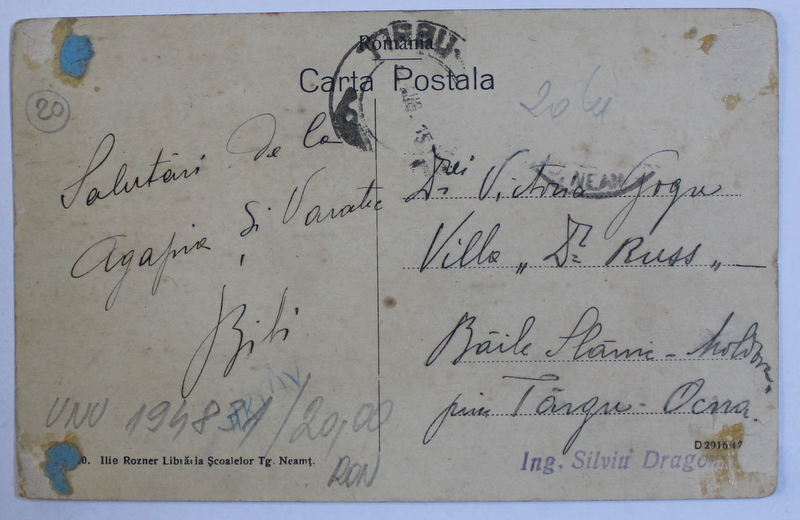 România
Carta Postala
20
20 lei
Salutări de la
Agapia și Varatic
Bibi
D-rei Victoria Gogu
Villa „Dr Russ„
Băile Slănic - Moldova
prin Târgu-Ocna.
VNV 194831/20,00
RON
Ilie Rozner Librăria Școalelor Tg. Neamț.
D 2916 42
Ing. Silviu Dragomir